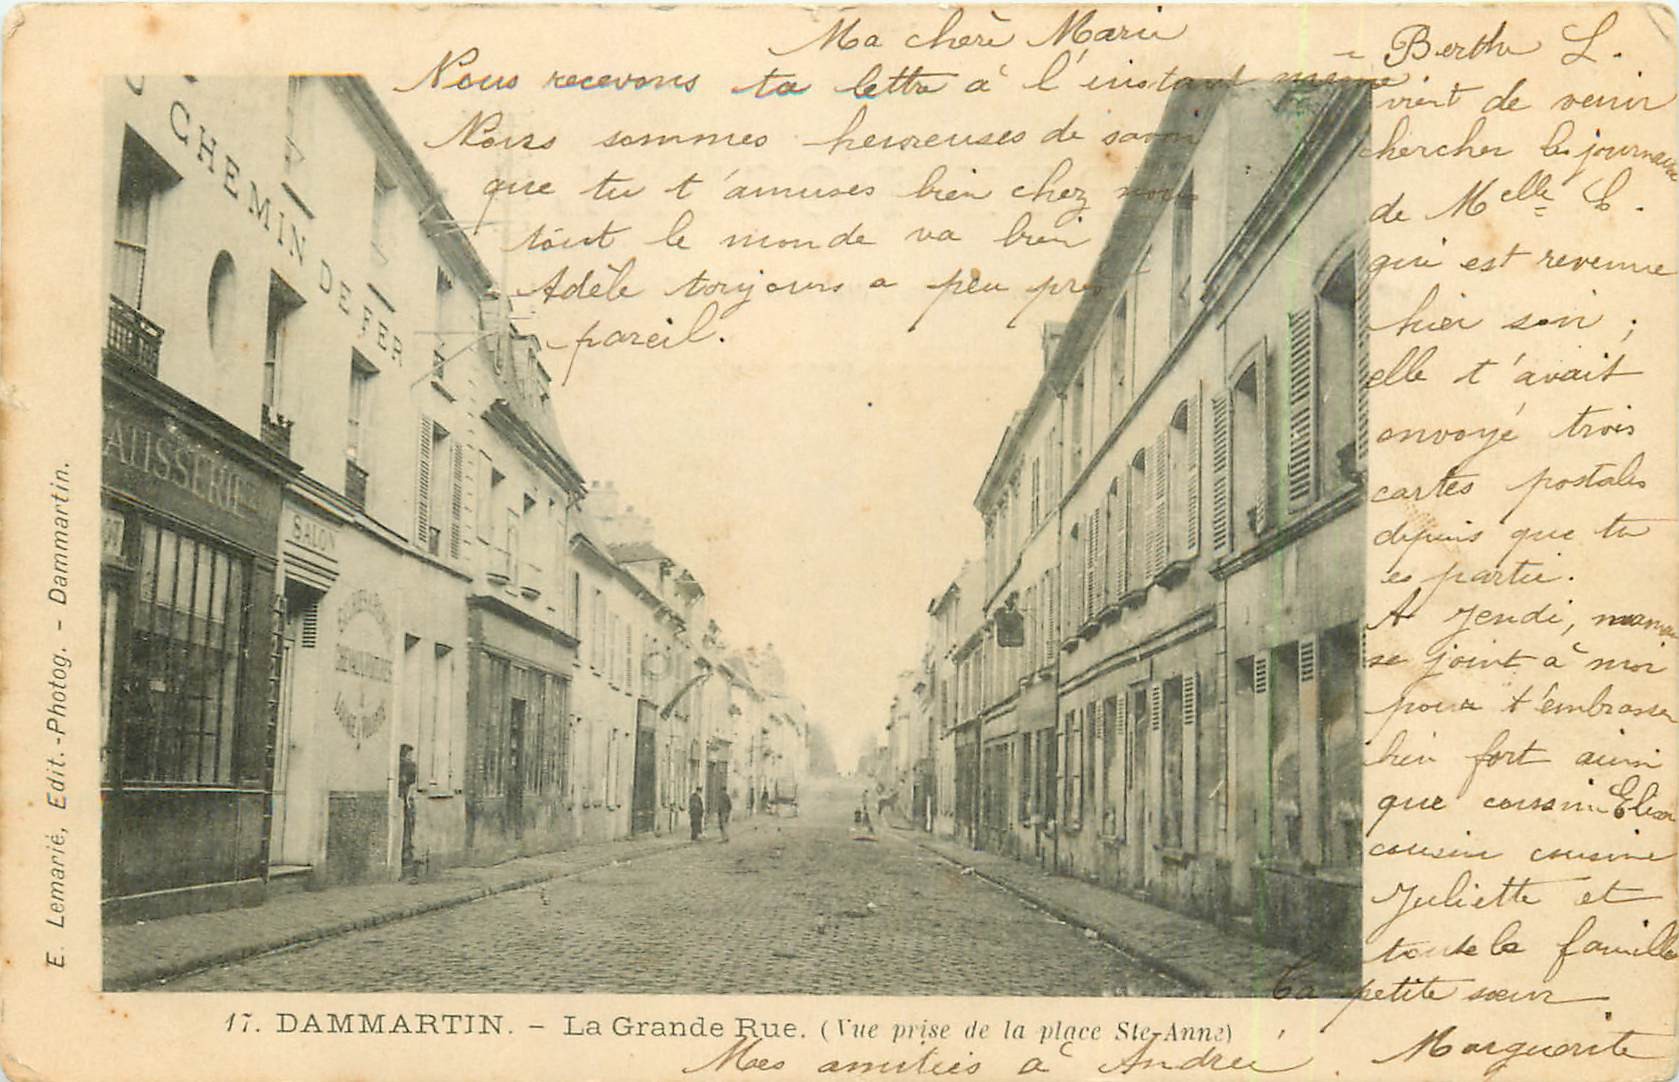 Ma chère Marie
Nous recevons ta lettre à l'instant même
Nous sommes heureuses de savoir
que tu t'amuses bien chez nous
tout le monde va bien
Adèle toujours a peu près
pareil.
- Berthe L.
vient de venir
chercher les journaux
de Melle L.
qui est revenue
hier soir ;
elle t'avait
envoyé trois
cartes postales
depuis que tu
es partie.
A Jeudi, maman
se joint à moi
pour t'embrasser
bien fort ainsi
que cousin
cousin cousine
Juliette et
toute la famille
Ta petite sœur
Marguerite
Mes amitiés à André
CHEMIN DE FER
ATISSERIE
SALON
E. Lemarié, Edit.-Photog. - Dammartin.
17. DAMMARTIN. - La Grande Rue. (Vue prise de la place Ste-Anne)